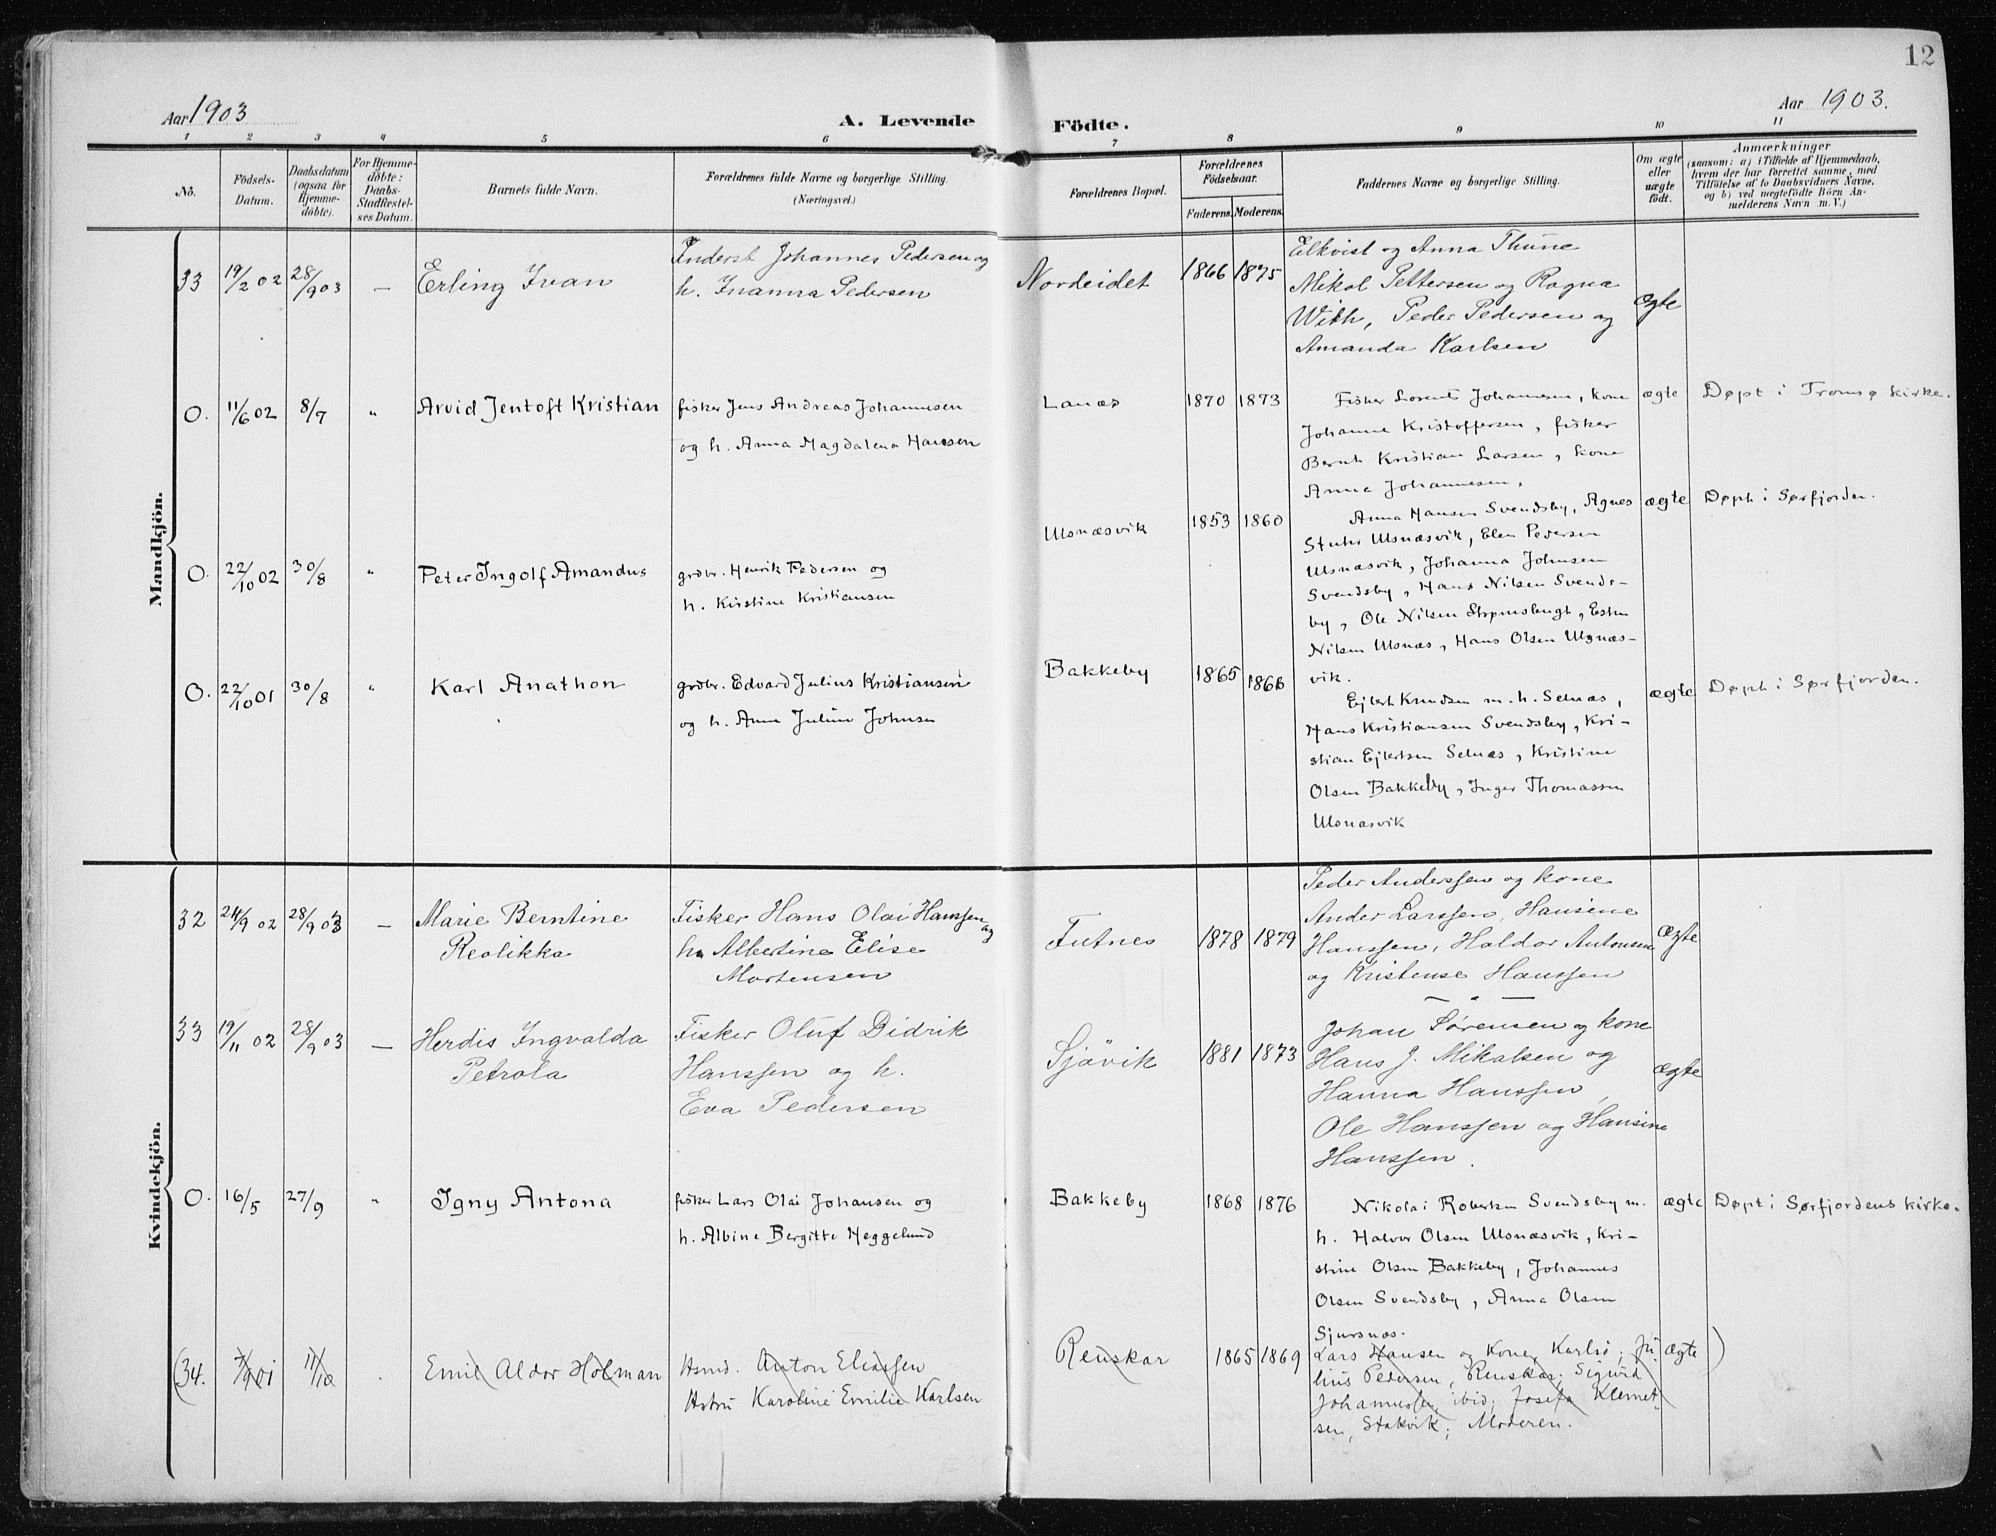 12
Aar 1903
A. Levende Födte.
Aar 1903.
1 2 3 4 5 6 7 8 9 10 11
No.
Födsels-
Datum.
Daabsdatum
(ogsaa for
Hjemme-
döbte).
For Hjemme-
döbte:
Daabs-
Stadfæstel-
ses Datum.
Barnets fulde Navn.
Forældrenes fulde Navne og borgerlige Stilling.
(Næringsvei.)
Forældrenes Bopæl.
Forældrenes
Födselsaar.
Faderens. Moderens.
Faddernes Navne og borgerlige Stilling.
Om ægte
eller
uægte
födt.
Anmærkninger
(saasom: a) i Tilfælde af Hjemmedaab,
hvem der har forrettet samme, med
Tilföielse af to Daabsvidners Navne,
og b) ved uægtefödte Börn An-
melderens Navn m. V.)
Mandkjön.
33 19/2 02 28/9 03 — Erling Ivan
Johannes Pedersen og
h. Inanna Pedersen
Nordeidet 1866 1875
Elkvist og Anna Thune
Mikal Pettersen og Ragna
With, Peder Pedersen og
Amanda Karlsen
ægte
O. 11/6 02 8/7 " Arvid Jentoft Kristian
fisker Jens Andreas Johannesen
og h. Anna Magdalena Hansen
Lanæs 1870 1873
Fisker Lorents Johannesen, kone
Johanne Kristoffersen, fisker
Bernt Kristian Larsen, kone
Anna Johannesen.
ægte
Døpt i Tromsø kirke.
O. 22/10 02 30/8 " Peter Ingolf Amandus
grdbr. Henrik Pedersen og
h. Kirstine Kristiansen
Ulsnæsvik 1853 1860
Anna Hansen Svendsby, Agnes
Ulsnæsvik, Elen Pedersen
Ulsnæsvik, Johanna Johnsen
Svendsby, Hans Nilsen Svends-
by, Ole Nilsen Strømsbugt,
Nilsen Ulsnæs, Hans Olsen Ulsnæs-
vik.
ægte
Døpt i Sørfjorden.
O. 22/10 01 30/8 " Karl Anathon
grdbr. Edvard Julius Kristiansen
og h. Anna Juline Johnsen
Bakkeby 1865 1866
Ejlert Knudsen m. h. Selnæs,
Hans Kristiansen Svendsby, Kri-
stian Ejlertsen Selnæs, Kristine
Olsen Bakkeby, Inger Thomassen
Ulsnæsvik
ægte
Døpt i Sørfjorden.
Kvindekjön.
32 24/9 02 28/9 03 — Marie Berntine
Reolikka
Fisker Hans Olai Hanssen og
h. Albertine Elise
Mortensen
Futnes 1878 1879
Peder Anderssen og kone
Ander Larssen, Hansine
Hanssen, Haldor Antonsen
og Kristense Hanssen
ægte
33 19/11 02 28/9 03 — Herdis Ingvalda
Petrola
Fisker Oluf Didrik
Hanssen og h.
Eva Pedersen
Sjövik 1881 1873
Johan Sørensen og kone
Hans J. Mikalsen og
Hanna Hanssen,
Ole Hanssen og Hansine
Hanssen.
ægte
O. 16/5 27/9 " Igny Antona
fisker Lars Olai Johansen og
h. Albine Bergitte Heggelund
Bakkeby 1868 1876
Nikolai Robertsen Svendsby m.
h. Halvor Olsen Ulsnæsvik, Kri-
stine Olsen Bakkeby, Johannes
Olsen Svendsby, Anna Olsen
Sjursnæs.
ægte
Døpt i Sørfjordens kirke.
(34. 7/9 01 11/10 . Emil Aldor Holman
Hsmd. Anton Eliassen
Hstru Karoline Emilie Karlsen
Renskar 1865 1869
Lars Hansen og Kone, Karlsö; Ju-
lius Pedersen, Renskar; Sigurd
Johannessen, ibid; Josefa Klemet-
sen, Stakvik; Moderen.
ægte )